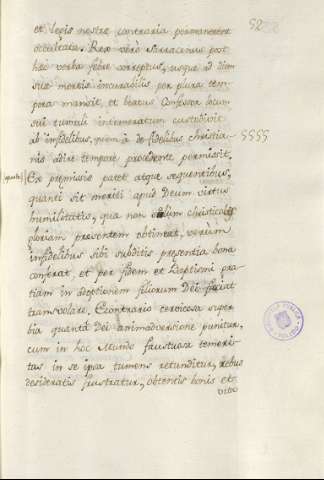 52
et legis nostre contraria permanerent
occultata. Rex verò Sarracenus post
hæc verba febre correptus, usque ad diem
suæ mortis incurabilis per plura tem-
pora mansit, et beatus Confessor locum
sui tumuli intemeratum custodivit
ab infidelibus, quem à de fidelibus christia-
nis adire tempore procedente permissit.
Ex premissis patet atque sequentibus,
quanti sit meriti apud Deum virtus
humilitatis, qua non solum christicolis
gloriam presentem obtineat, verùm
infidelibus sibi subditis presentia bona
conferat, et per fidem et Baptismi gra-
tiam in adoptionem filiorum Dei faciat
transvolare. Econtrario cervicosa super
bia quanta Dei animadversione punitur,
cum in hoc Mundo faustuosa temeri-
tas in se ipsa tumens retunditur, rebus
desideratis frustratur, obtentis bonis et
vita